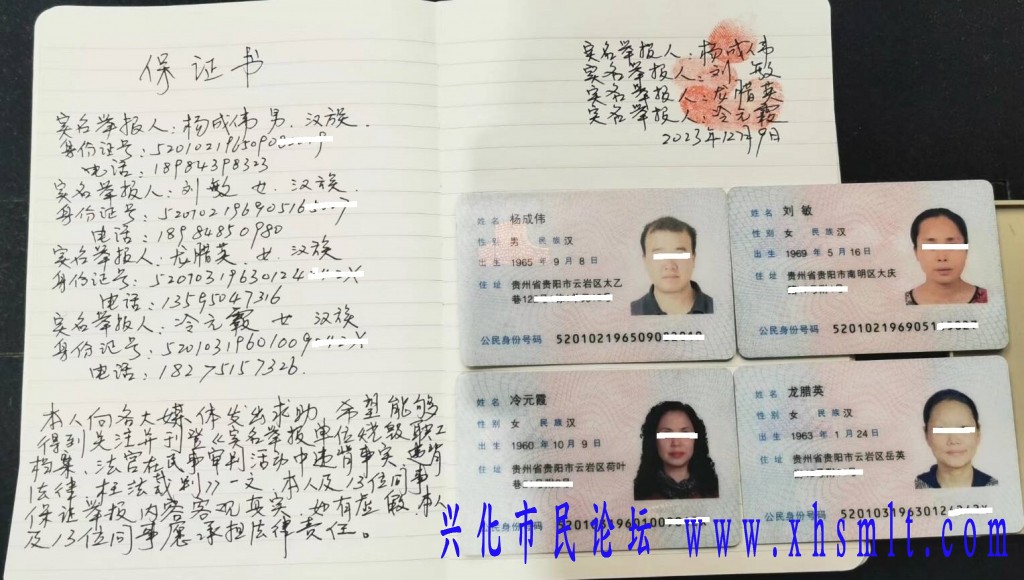 保证书
实名举报人：杨成伟 男. 汉族.
身份证号：52010219650908
电话：18984398323
实名举报人：刘敏 女. 汉族.
身份证号：52010219690516
电话：18984850980
实名举报人：龙腊英. 女. 汉族.
身份证号：52010319630124 X
电话：13595047316
实名举报人：冷元霞 女 汉族
身份证号：52010319601009 X
电话：18275157326.
本人向各大媒体发出求助，希望能够
得到关注并刊登《实名举报单位烧毁职工
档案、法官在民事审判活动中违背事实违背
法律，枉法裁判》一文，本人及13位同事
保证举报内容客观真实，如有虚假，本人
及13位同事愿承担法律责任。
实名举报人：杨成伟
实名举报人：刘 敏
实名举报人：龙腊英
实名举报人：冷元霞
2023年12月9日
姓名 杨成伟
性别 男 民族 汉
出生 1965 年 9 月 8 日
住址 贵州省贵阳市云岩区太乙
巷12
公民身份号码 5201021965090
姓名 刘 敏
性别 女 民族 汉
出生 1969 年 5 月 16 日
住址 贵州省贵阳市南明区大庆
公民身份号码 5201021969051
姓名 冷元霞
性别 女 民族 汉
出生 1960 年 10 月 9 日
住址 贵州省贵阳市云岩区荷叶
巷
公民身份号码 5201031960100
姓名 龙腊英
性别 女 民族 汉
出生 1963 年 1 月 24 日
住址 贵州省贵阳市云岩区岳英
公民身份号码 520103196301
兴化市民论坛 www.xhsmlt.com